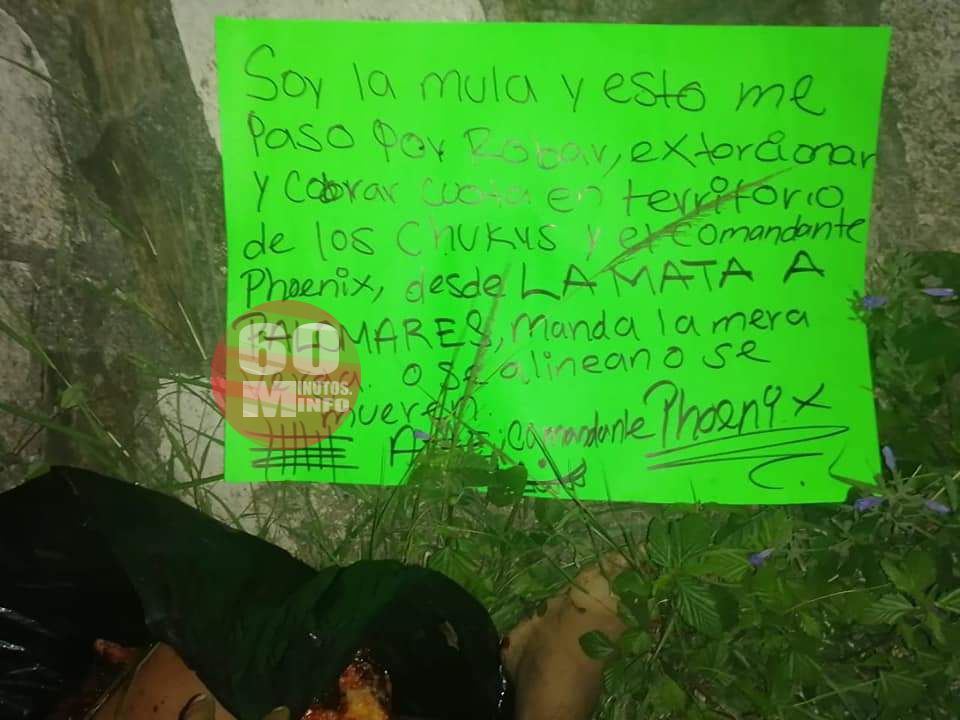 Soy la mula y esto me
Paso Por Robar, extorcionar
y cobrar cuota en territorio
de los CHUKYS y el comandante
Phoenix, desde LA MATA A
PALOMARES, manda la mera
o se alinean o se
mueren.
ATT: comandante Phoenix
60
MINUTOS.
INFO